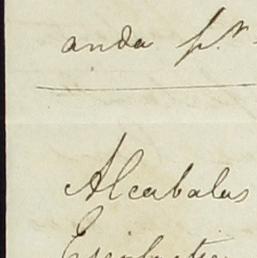 anda p.r
Alcabalas